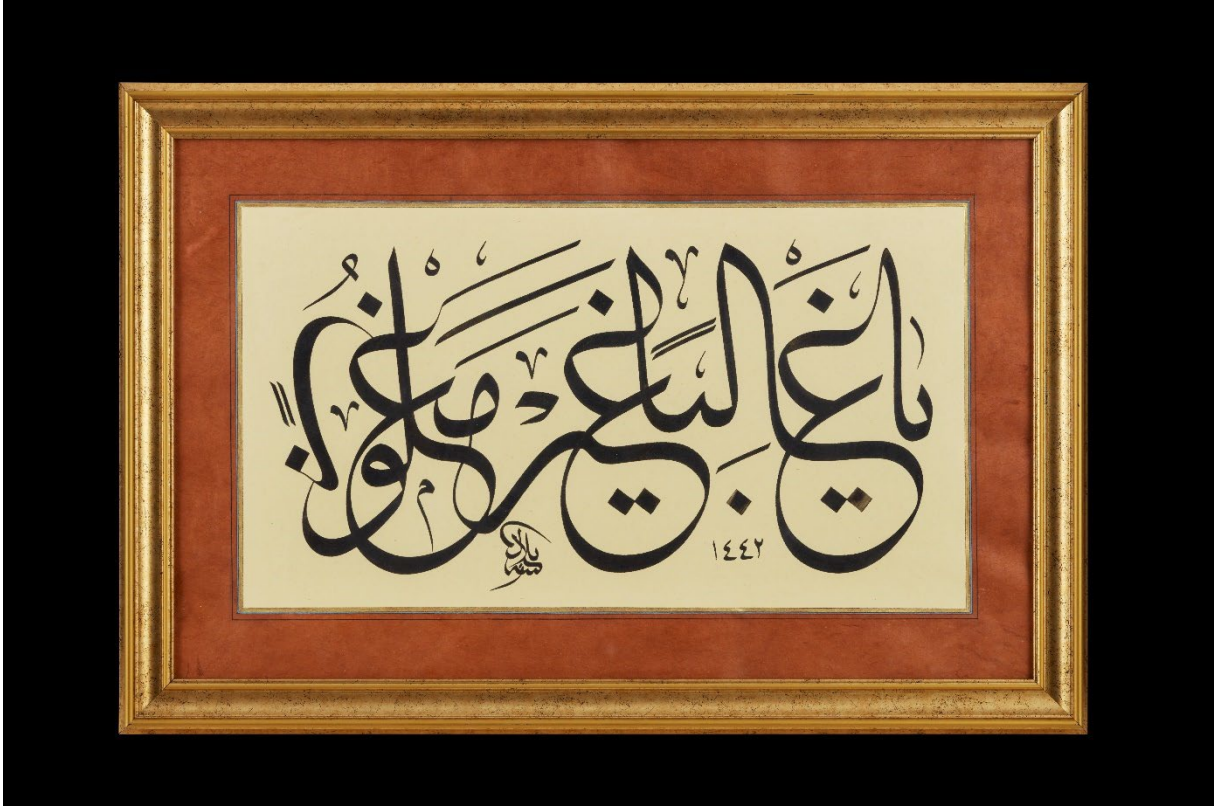 يا غالبًا غير مغلوبٍ
١٤٤٢